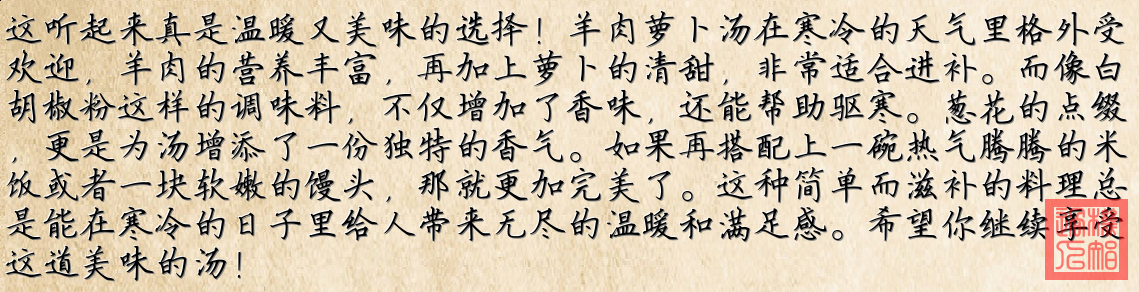 这听起来真是温暖又美味的选择！羊肉萝卜汤在寒冷的天气里格外受
欢迎，羊肉的营养丰富，再加上萝卜的清甜，非常适合进补。而像白
胡椒粉这样的调味料，不仅增加了香味，还能帮助驱寒。葱花的点缀
，更是为汤增添了一份独特的香气。如果再搭配上一碗热气腾腾的米
饭或者一块软嫩的馒头，那就更加完美了。这种简单而滋补的料理总
是能在寒冷的日子里给人带来无尽的温暖和满足感。希望你继续享受
这道美味的汤！